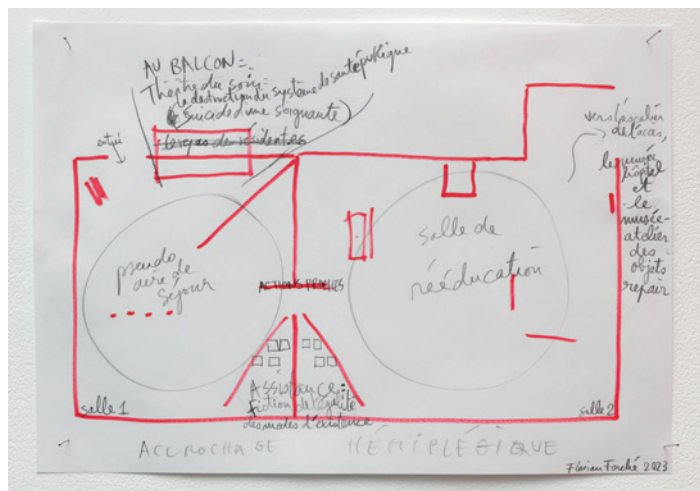 AU BALCON =
Théâtre du soin =
la destruction du système de santé publique
(suicide d'une soignante)
le repas de résidentes
entrée
vers l'escalier
de
le musée
hôpital
et
le
musée-
atelier
des
objets
repair
pseudo
aire de
séjour
salle de
rééducation
ACTIONS PROCHES
Assistance =
Fiction de l'égalité
des modes d'existence
salle 1
salle 2
ACCROCHAGE HÉMIPLÉGIQUE
Florian Fouché 2023